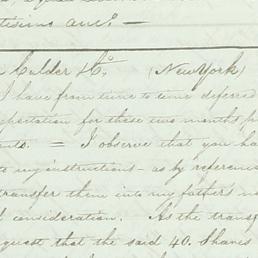 — 
Calder & Co. (New York)
I have from time to time deferred
expectation for these two months p
ents. = I observe that you ha
to my instructions – as by reference
transfer them into my father's n
consideration. As the transf
quest that the said 40. Shares